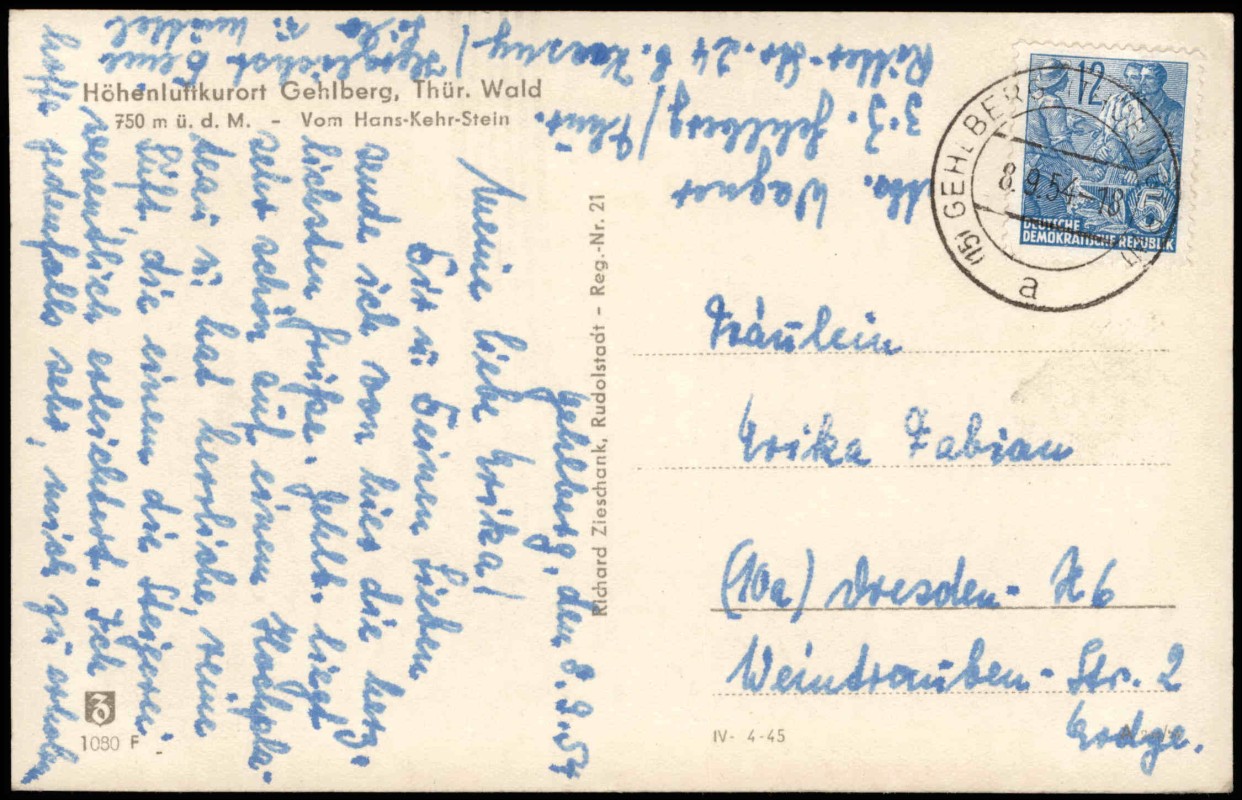 Höhenluftkurort Gehlberg, Thür. Wald
750 m ü. d. M. - Vom Hans-Kehr-Stein
Gehlberg, den 8.9.54
Meine liebe Erika!
Dir u. Deinen Lieben
sende ich von hier die herz-
lichsten Grüße. Gehlb. liegt
sehr schön auf einem Hochpla-
teau u. hat herrliche, reine
Luft, die einem die Steigerei
wesentlich erleichtert. Ich
hoffe jedenfalls sehr, mich zu erholen
Herzlichst Deine
Wagner
z.Z. Gehlberg/Thür.
Ritter-Str. 24 b.
Richard Zieschank, Rudolstadt - Reg.-Nr. 21
1080 F
12
(15) GEHLBERG
8.9.54-18
a
5
DEUTSCHE
DEMOKRATISCHE REPUBLIK
Fräulein
Erika Fabian
(10a) Dresden- N 6
Weintrauben- Str. 2
Erdge.
IV- 4-45